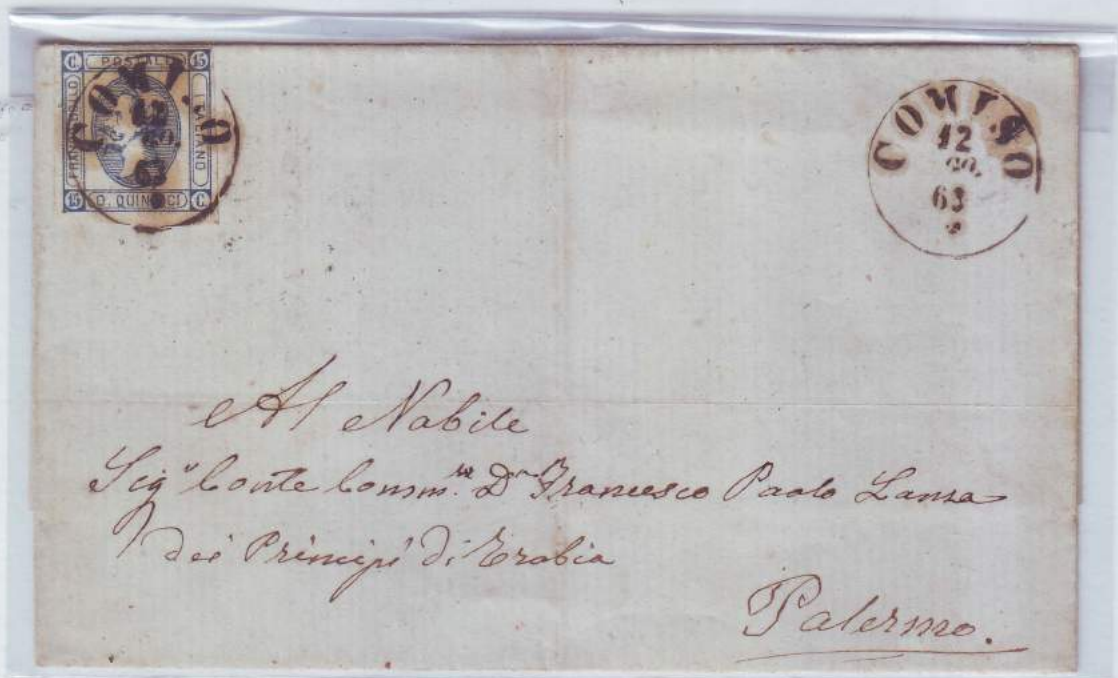 C. POSTALE 15
FRANCOBOLLO
ITALIANO
15 C. QUINDICI C.
COMISO
COMISO
12
GO.
63
Al Nobile
Sigr Conte Comm.re Dn Francesco Paolo Lanza
dei Principi di Trabia
Palermo.